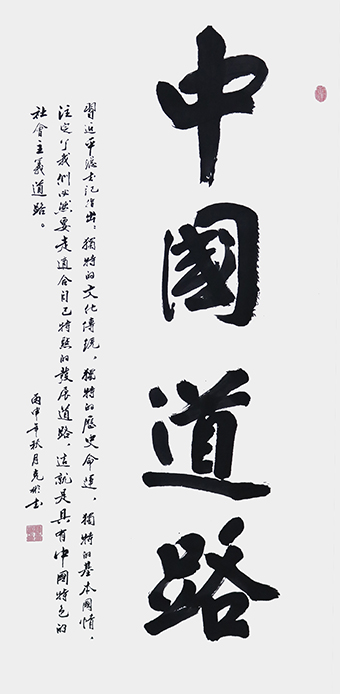 中國道路
習近平總書記指出：獨特的文化傳統，獨特的歷史命運，獨特的基本國情，
注定了我們必然要走適合自己特點的發展道路，這就是具有中國特色的
社會主義道路。
丙申年秋月克彬書